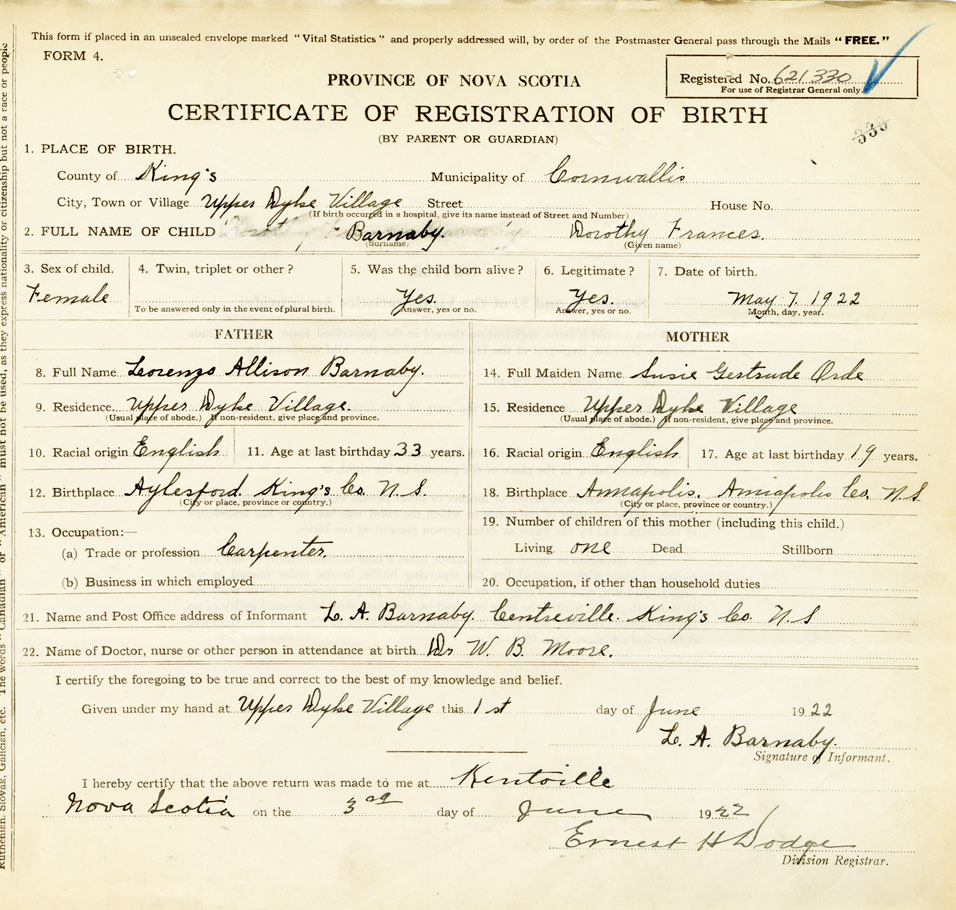 This form if placed in an unsealed envelope marked "Vital Statistics" and properly addressed will, by order of the Postmaster General pass through the Mails "FREE."
FORM 4.
Registered No. 621330
For use of Registrar General only.
330
PROVINCE OF NOVA SCOTIA
CERTIFICATE OF REGISTRATION OF BIRTH
(BY PARENT OR GUARDIAN)
1. PLACE OF BIRTH.
County of King's Municipality of Cornwallis
City, Town or Village Upper Dyke Village Street House No.
(If birth occurred in a hospital, give its name instead of Street and Number)
2. FULL NAME OF CHILD Barnaby. Dorothy Frances.
(Surname) (Given name)
3. Sex of child. 4. Twin, triplet or other? 5. Was the child born alive? 6. Legitimate? 7. Date of birth.
Female Yes. Yes. May 7. 1922
To be answered only in the event of plural birth. Answer, yes or no. Answer, yes or no. Month, day, year.
FATHER MOTHER
8. Full Name Lorenzo Allison Barnaby. 14. Full Maiden Name Susie Gertrude Orde
9. Residence Upper Dyke Village. 15. Residence Upper Dyke Village
(Usual place of abode.) If non-resident, give place and province. (Usual place of abode.) If non-resident, give place and province.
10. Racial origin English 11. Age at last birthday 33 years. 16. Racial origin English 17. Age at last birthday 19 years.
12. Birthplace Aylesford. King's Co. N.S. 18. Birthplace Annapolis. Annapolis Co. N.S
(City or place, province or country.) (City or place, province or country.)
13. Occupation:— 19. Number of children of this mother (including this child.)
(a) Trade or profession Carpenter. Living one Dead Stillborn
(b) Business in which employed 20. Occupation, if other than household duties
21. Name and Post Office address of Informant L. A. Barnaby. Centreville. King's Co. N.S
22. Name of Doctor, nurse or other person in attendance at birth Dr W. B. Moore.
I certify the foregoing to be true and correct to the best of my knowledge and belief.
Given under my hand at Upper Dyke Village this 1st day of June 1922
L. A. Barnaby.
Signature of Informant.
I hereby certify that the above return was made to me at Kentville
Nova Scotia on the 3rd day of June 1922
Ernest H Dodge
Division Registrar.
Ruthenian, Slovak, Galician, etc. The words "Canadian" or "American" must not be used, as they express nationality or citizenship but not a race or people